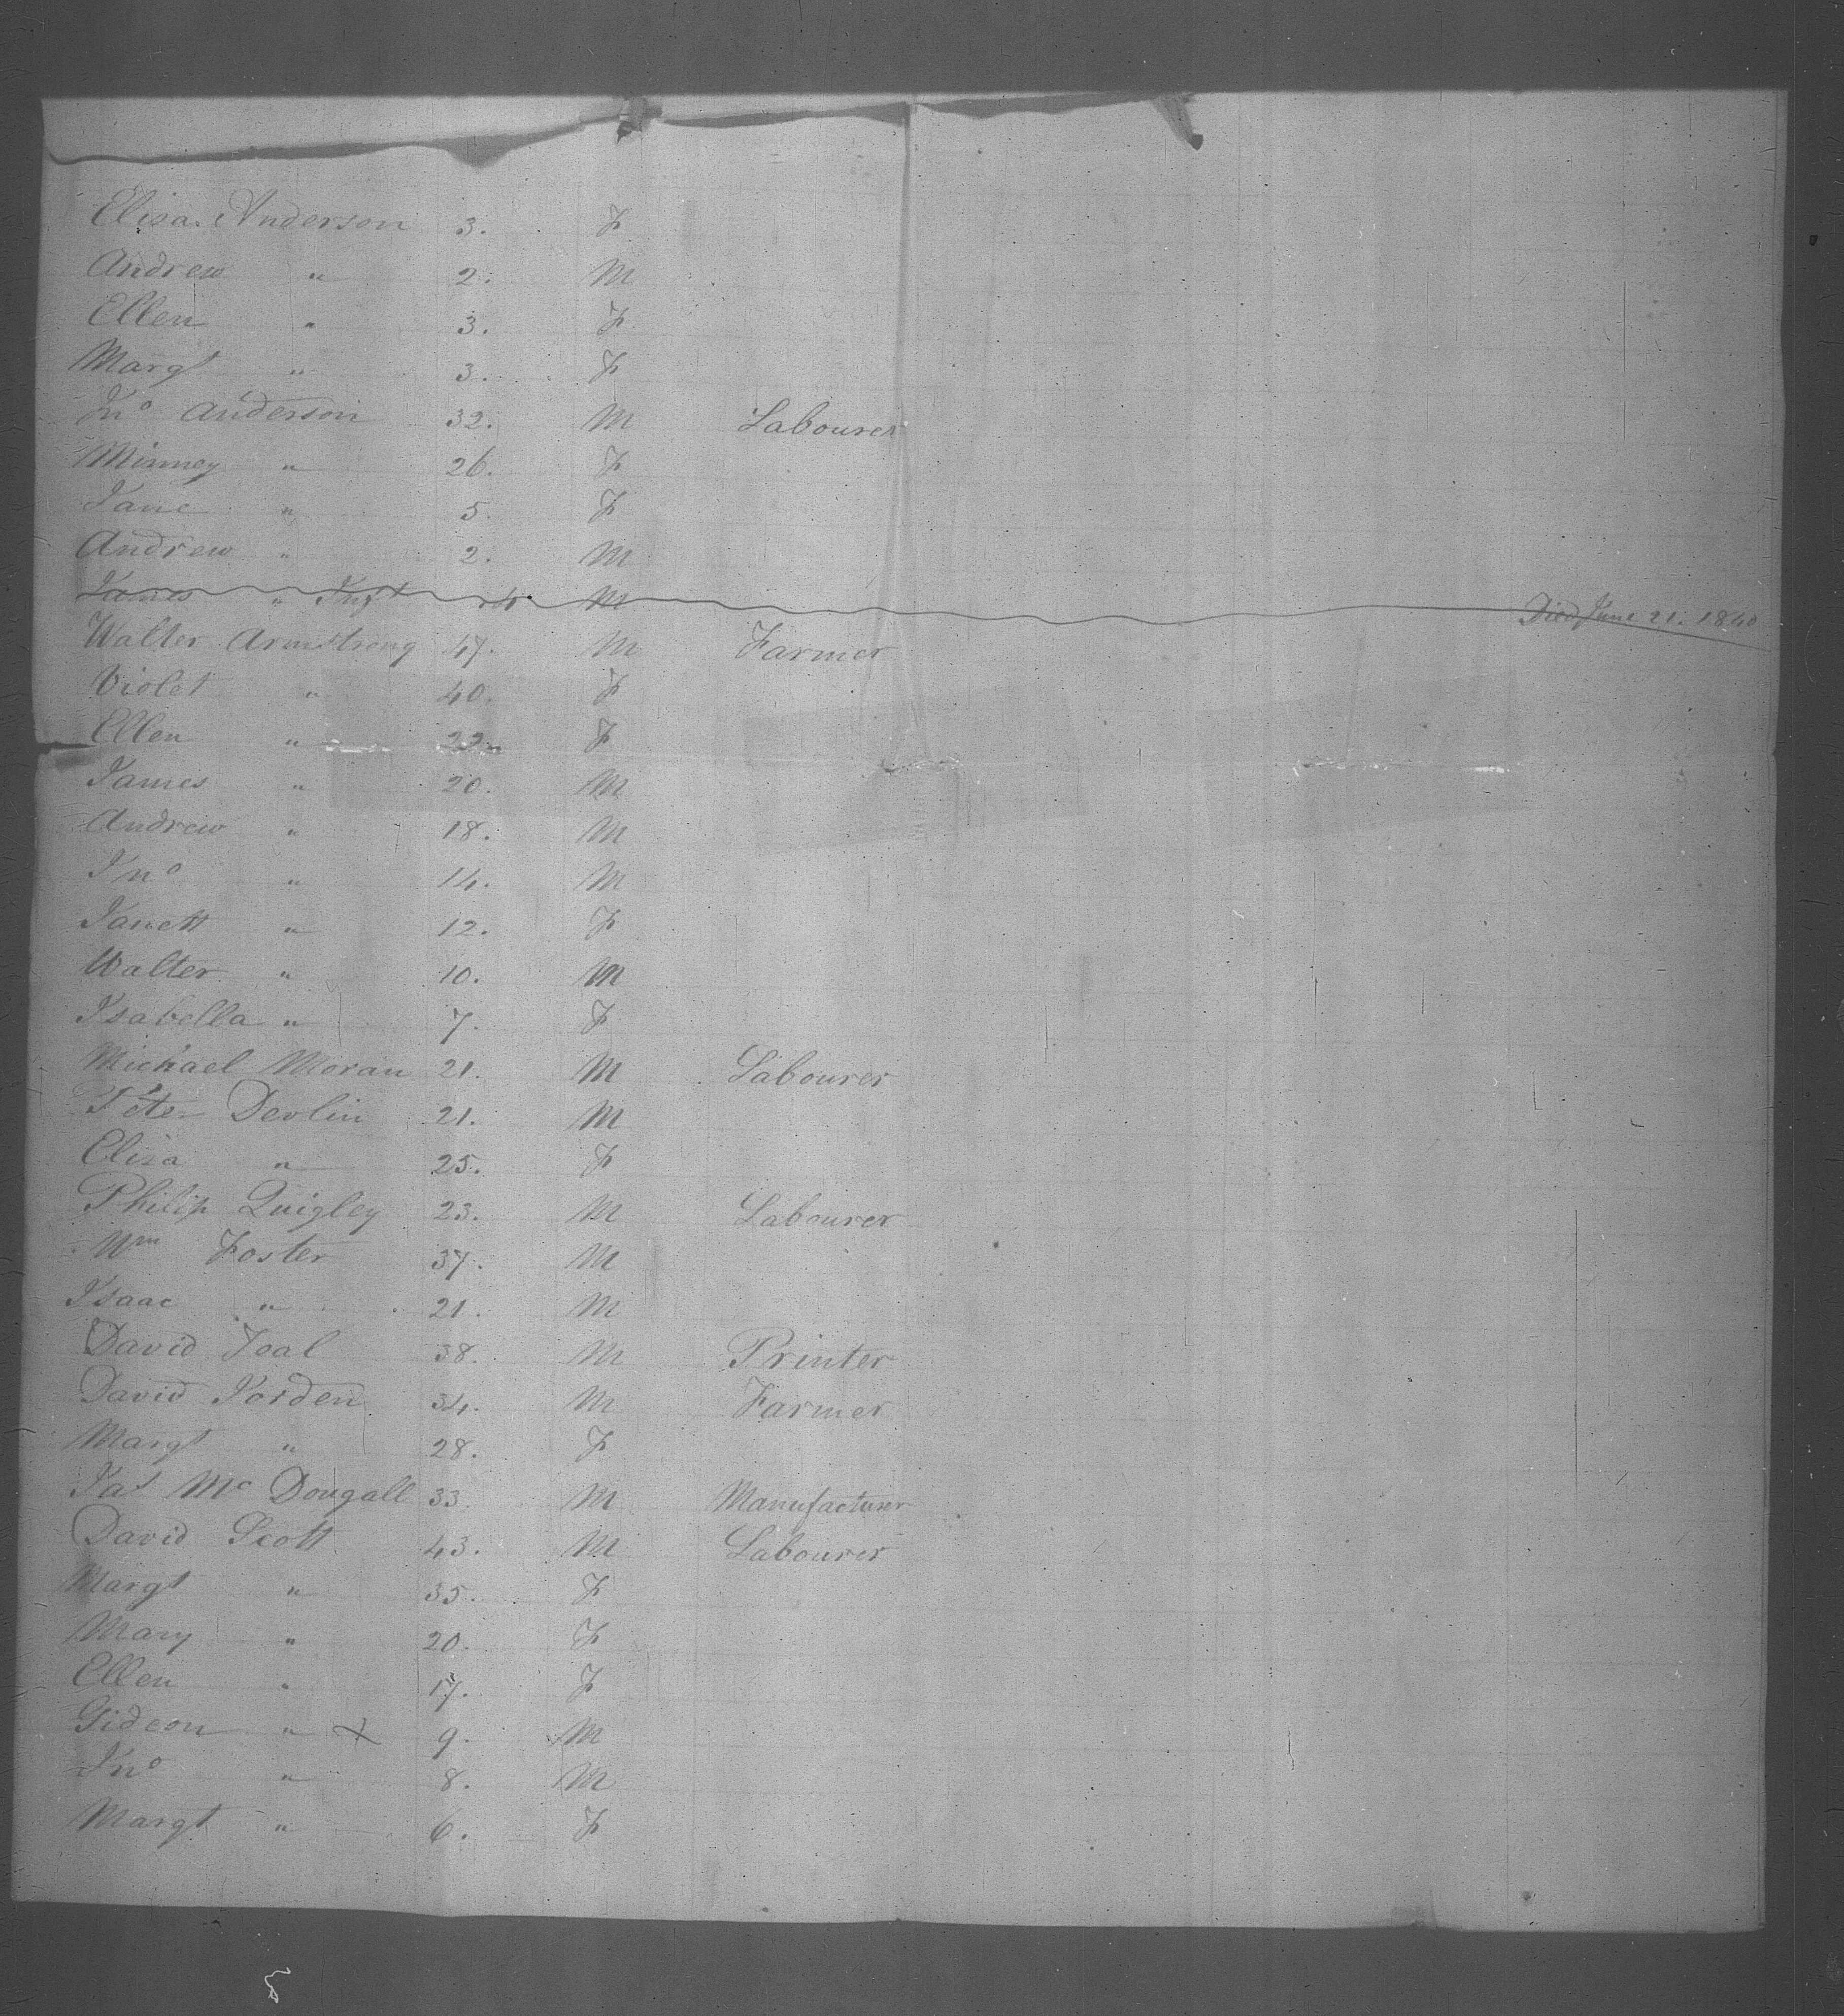 Elisa Anderson 3. F
Andrew " 2. M
Ellen " 3. F
Margt " 3. F
Jno Anderson 32. M Labourer
Minney " 26. F
Jane " 5. F
Andrew " 2. M
James " Inft M Died June 21. 1840
Walter Armstrong 47. M Farmer
Violet " 40. F
Ellen " 22. F
James " 20. M
Andrew " 18. M
Jno " 14. M
Janett " 12. F
Walter " 10. M
Isabella " 7. F
Michael Moran 21. M Labourer
Peter Devlin 21. M
Elisa " 25. F
Philip Quigley 23. M Labourer
Wm Foster 37. M
Isaac " 21. M
David Toal 38. M Printer
David Jorden 34. M Farmer
Margt " 28. F
Jas McDougall 33. M Manufacturer
David Scott 43. M Labourer
Margt " 35. F
Mary " 20. F
Ellen " 17. F
Gideon " X 9. M
Jno " 8. M
Margt " 6. F